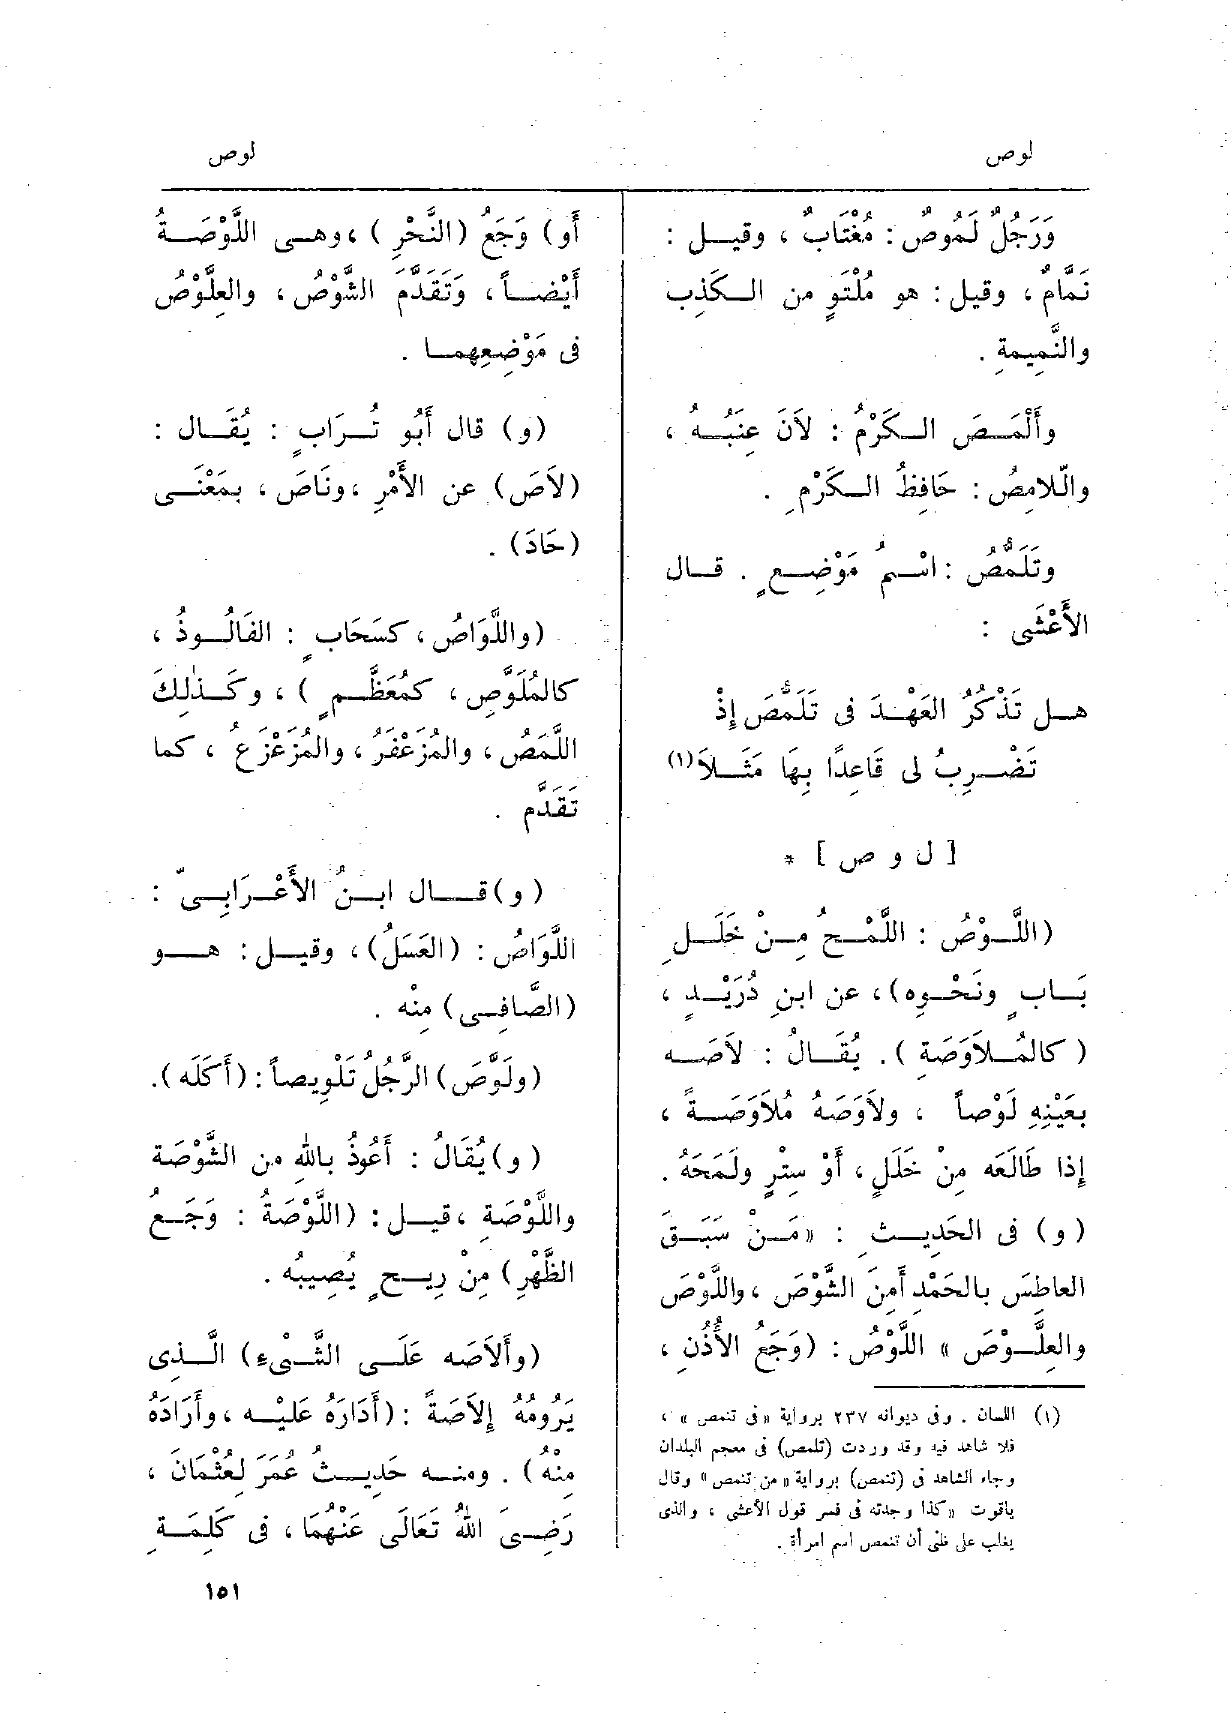 لوص
وَرَجُلٌ لَمُوصٌ : مُغْتَابٌ ، وقيل :
نَمَّامٌ ، وقيل : هو مُلْتَوٍ من الكَذِب
والنَّمِيمةِ .
وأَلْمَصَ الكَرْمُ : لاَنَ عِنَبُهُ ،
واللاَّمِصُ : حَافِظُ الكَرْمِ .
وتَلَمُّصُ : اسْمُ مَوْضِعٍ . قال
الأَعْشَى :
هل تَذْكُرُ العَهْدَ فى تَلَمُّصَ إِذْ
تَضْرِبُ لى قَاعِدًا بِهَا مَثَلاَ (١)
[ ل و ص ] *
(اللَّوْصُ : اللَّمْحُ مِنْ خَلَلِ
بَابٍ ونَحْوِه)، عن ابنِ دُرَيْدٍ ،
( كالمُلاَوَصَةِ ). يُقَالُ : لاَصَه
بعَيْنِهِ لَوْصاً ، ولاَوَصَهُ مُلاَوَصَةً ،
إِذا طَالَعَه مِنْ خَلَلٍ ، أَوْ سِتْرٍ ولَمَحَهُ .
(و) فى الحَدِيثِ : «مَنْ سَبَقَ
العاطِسَ بالحَمْدِ أَمِنَ الشَّوْصَ ، واللَّوْصَ
والعِلَّوْصَ » اللَّوْصُ : (وَجَعُ الأُذُنِ ،
(١) اللسان . وفى ديوانه ٢٣٧ برواية «فى تنمص » ،
فلا شاهد فيه وقد وردت (تلمص) فى معجم البلدان
وجاء الشاهد فى (تنمص) برواية «من تنمص» وقال
ياقوت «كذا وجدته فى فسر قول الأعشى ، والذى
يغلب على ظنى أن تنمص اسم امرأة .
لوص
أَو) وَجَعُ (النَّحْرِ ) ، وهى اللَّوْصَةُ
أَيْضاً ، وَتَقَدَّمَ الشَّوْصُ ، والعِلَّوْصُ
فى مَوْضِعِهما .
(و) قال أَبُو تُرَابٍ : يُقَال :
(لاَصَ) عن الأَمْرِ ، ونَاصَ ، بمَعْنَى
(حَادَ) .
(واللَّوَاصُ ، كسَحَابٍ : الفَالُوذُ ،
كالمُلَوَّصِ ، كمُعَظَّمٍ ) ، وكَذٰلِكَ
اللَّمَصُ ، والمُزَعْفَرُ ، والمُزَعْزَعُ ، كما
تَقَدَّم .
(و) قال ابنُ الأَعْرَابِىّ :
اللَّوَاصُ : (العَسَلُ) ، وقيل : هو
(الصَّافِى) مِنْه .
(ولَوَّصَ) الرَّجُلُ تَلْوِيصاً : (أَكَلَه ).
(و) يُقَالُ : أَعُوذُ بالله من الشَّوْصَة
واللَّوْصَةِ ، قيل : (اللَّوْصَةُ : وَجَعُ
الظَّهْرِ) مِنْ رِيحٍ يُصِيبُه .
(وأَلاَصَه عَلَى الشَّىْءِ) الَّذِى
يَرُومُهُ إِلاَصَةً : (أَدَارَهُ عَلَيْه ، وأَرَادَهُ
مِنْهُ) . ومنه حَدِيثُ عُمَرَ لِعُثْمَانَ ،
رَضِىَ اللهُ تَعَالَى عَنْهُمَا ، فى كَلِمَةِ
١٥١